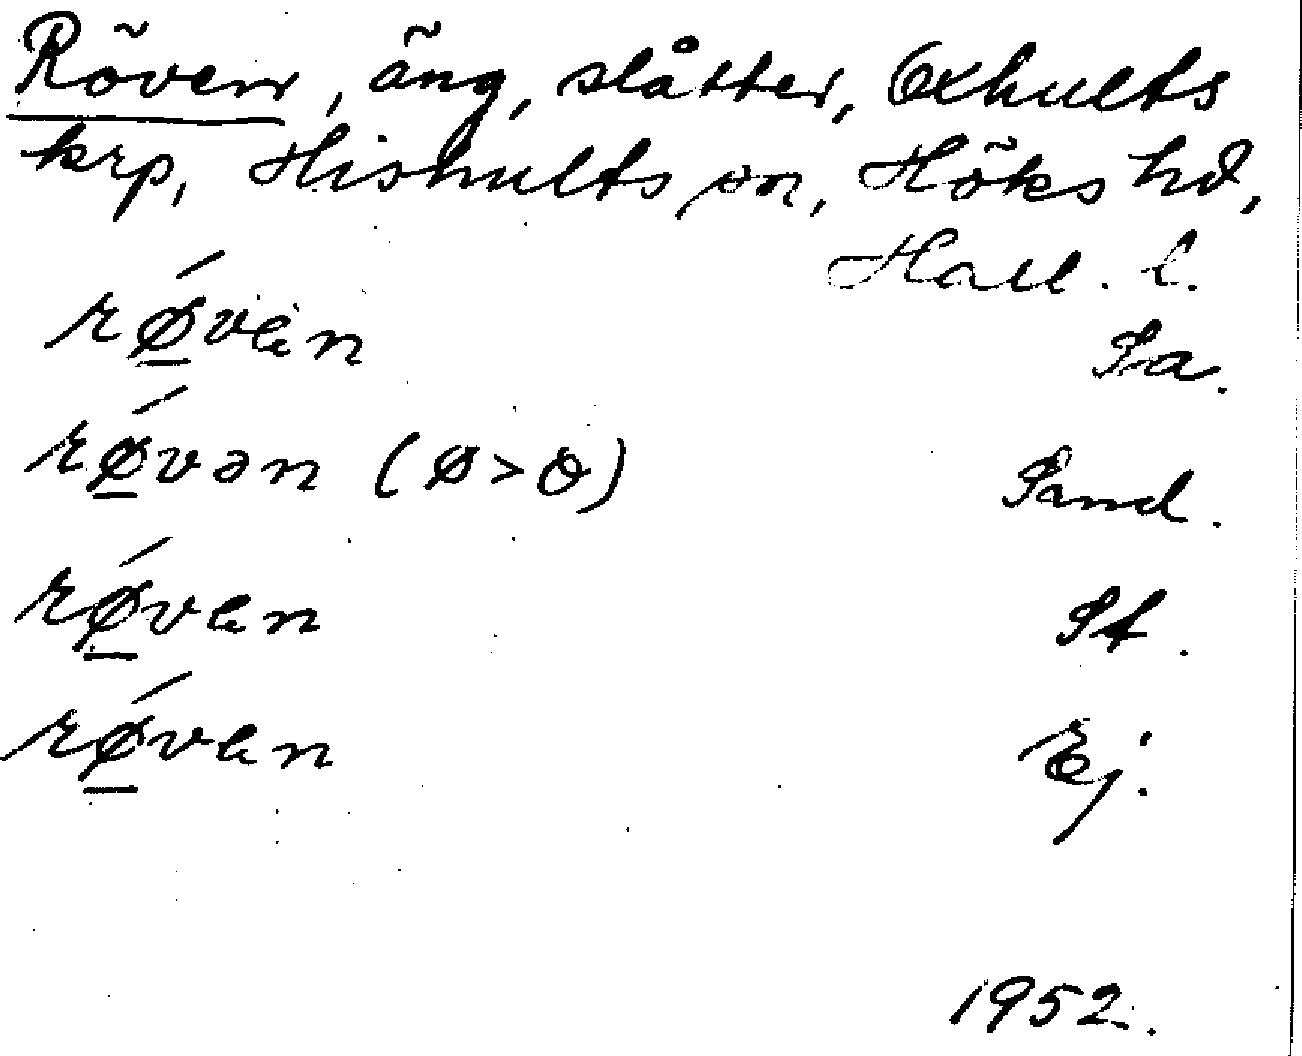 Röven, äng, slåtter, Oxhults
krp, Hishults sn, Höks hd,
Hall. l.
røván Sa.
røvən (ø > ɵ) Sand.
røvan St.
røvan Ej.
1952.